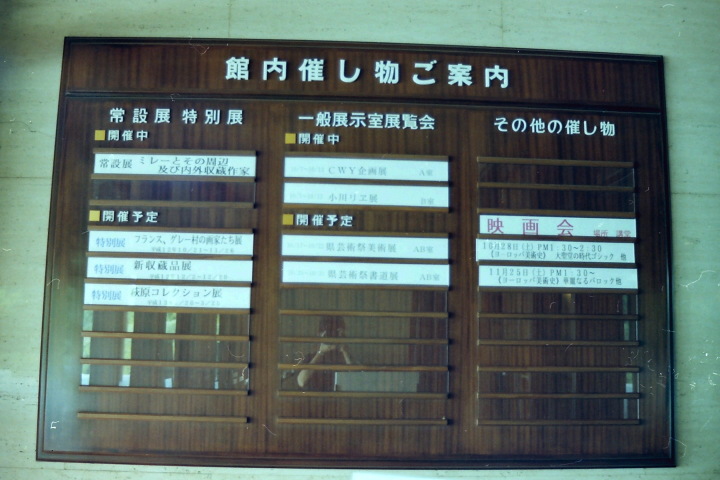 館内催し物ご案内
常設展 特別展
開催中
常設展 ミレーとその周辺
及び内外収蔵作家
開催予定
特別展 フランス、グレー村の画家たち展
特別展 新収蔵品展
特別展 萩原コレクション展
一般展示室展覧会
開催中
CWY企画展 A室
小川リヱ展 B室
開催予定
県芸術祭美術展 AB室
県芸術祭書道展 AB室
その他の催し物
映画会 場所 講堂
10月28日(土) PM1 30~2:30
《ヨーロッパ美術史》 大聖堂の時代ゴシック 他
11月25日(土) PM1 30~
《ヨーロッパ美術史》 華麗なるバロック 他